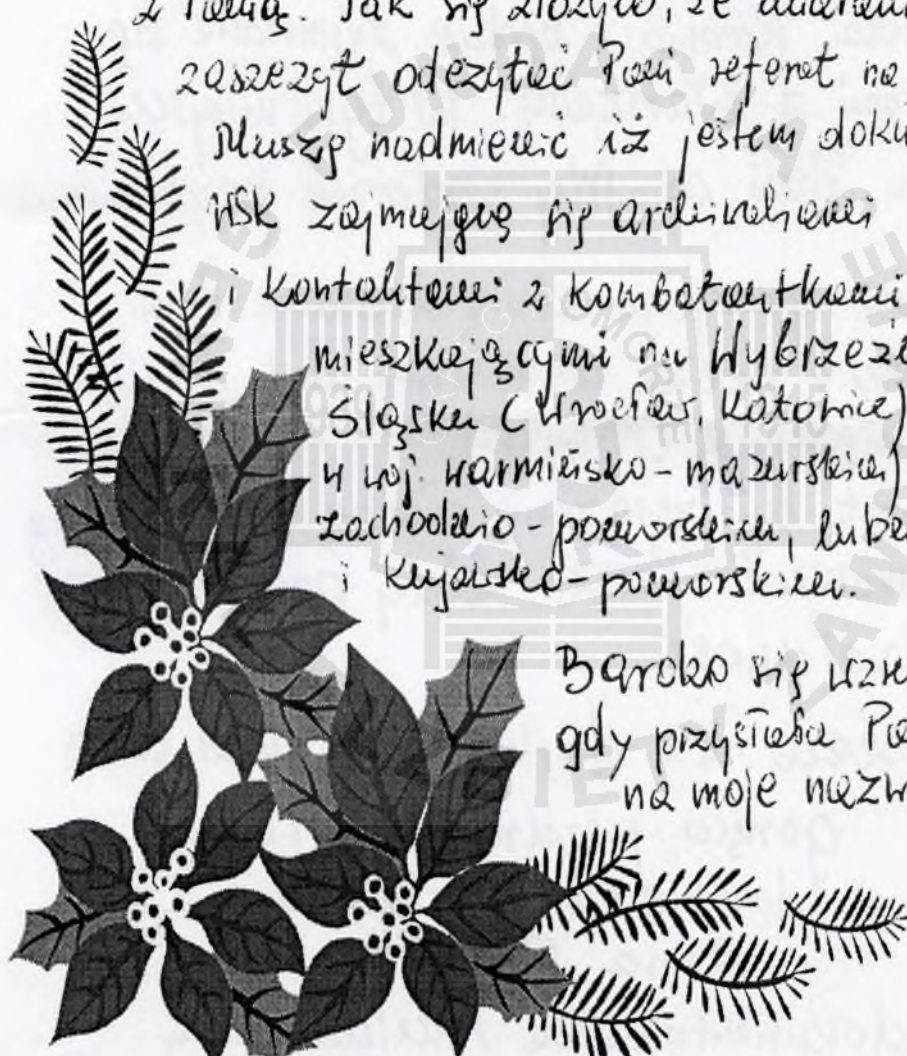 z Panią. Tak się złożyło, że miałam
zaszczyt odczytać Pani referat na
Muszę nadmienić iż jestem doku
WSK zajmującą się archiwaliami
i kontaktami z kombatantkami
mieszkającymi na Wybrzeżu
Śląsku (Wrocław, Katowice)
w woj. warmińsko-mazurskim)
zachodnio-pomorskim, lube
i kujawsko-pomorskim.
Bardzo się wzru
gdy przysłała Pa
na moje nazw
FUNDACJA GENERAŁ